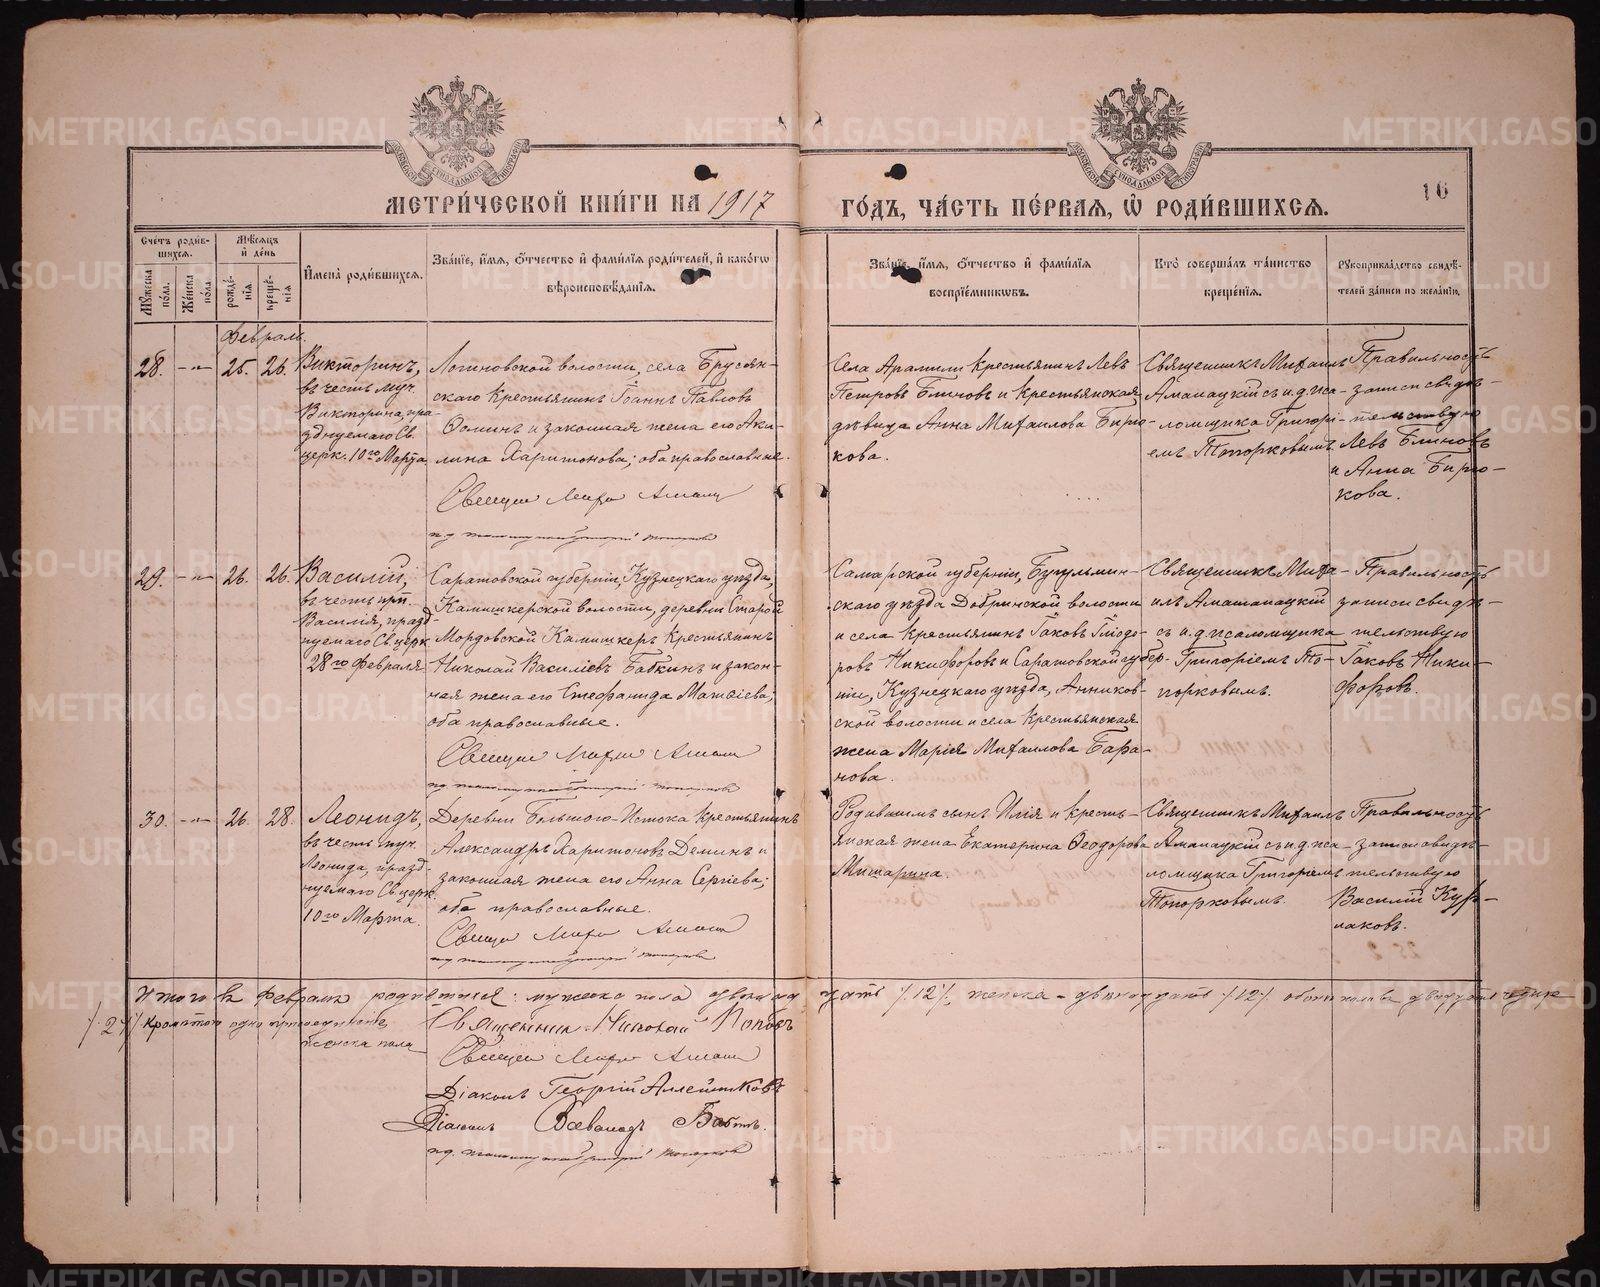 МЕТРИ́ЧЕСКОЙ КНИ́ГИ НА 1917
ГО́ДЪ, ЧА́СТЬ ПЕ́РВАЯ, Ѡ҆ РОДИ́ВШИХСЯ.
16
Сче́тъ роди́вшихся.
Мѣ́сяцъ и҆ де́нь
И҆мена̀ роди́вшихся.
Зва́нїе, и҆́мя, ѻ҆́тчество и҆ фами́лїя роди́телей, и҆ како́гѡ
вѣроисповѣ́данїя.
Зва́нїе, и҆́мя, ѻ҆́тчество и҆ фами́лїя
воспрїе́мникѡвъ.
Кто̀ соверша́лъ та́инство
креще́нїя.
Рꙋкоприкла́дство свидѣ́-
телей за́писи по жела́нїю.
Мꙋ́жеска по́ла.
Же́нска по́ла.
рожде́нїя
креще́нїя
Февраль.
28. -"- 25. 26.
Викторинъ,
въ честь муч.
Викторина, пра-
зднуемаго Св.
церк. 10го Марта
Логиновской волости, села Брусян-
скаго крестьянинъ Іоаннъ Павловъ
и законная жена его Аки-
лина Харитонова; оба православные.
Села Арамили крестьянинъ Левъ
Петровъ Блиновъ и крестьянская
дѣвица Анна Михаилова Бирю-
кова.
Священникъ Михаилъ
съ и.д. пса-
ломщика Григорі-
емъ Топорковымъ
Правильность
записи свидѣ-
тельствую
Левъ Блиновъ
и Анна Бирю-
кова.
29. -"- 26. 26.
Василій,
въ честь прп.
Василія, празд-
нуемаго Св. церк.
28го Февраля
Саратовской губерніи, Кузнецкаго уѣзда,
волости, деревни Старой
Мордовской крестьянинъ
Николай Василіевъ Бабкинъ и закон-
ная жена его Стефанида Матвіева;
оба православные.
Самарской губерніи, Бугульмин-
скаго уѣзда Добринской волости
и села крестьянинъ Іаковъ Иліодо-
ровъ Никифоровъ и Саратовской губер-
ніи, Кузнецкаго уѣзда, Анников-
ской волости и села крестьянская
жена Марія Михаилова Бара-
нова.
Священникъ Миха-
илъ
съ и.д. псаломщика
Григоріемъ То-
порковымъ.
Правильность
записи свидѣ-
тельствую
Іаковъ Ники-
форовъ.
30. -"- 26. 28.
Леонидъ,
въ честь муч.
Леонида, празд-
нуемаго Св. церк.
10го Марта.
Деревни Большого-Истока крестьянинъ
Александръ Харитоновъ Деминъ и
законная жена его Анна Сергіева;
оба православные.
Родившимъ сынъ Илія и кресть-
янская жена Екатерина Ѳеодорова
Мишарина.
Священникъ Михаилъ
съ и.д. пса-
ломщика Григоріемъ
Топорковымъ.
Правильность
записи свидѣ-
тельствую
Василій
Итого въ Февралѣ родившихся: мужеска пола двѣнад
цать /.12/., женска - двѣнадцать /.12/. обоего пола двадцать четыре
/.24/. кромѣ того одно присоединеніе
женска пола
Священникъ Николай Поповъ
Діаконъ Георгій Аллейниковъ
Діаконъ Всеволодъ
METRIKI.GASO-URAL.RU